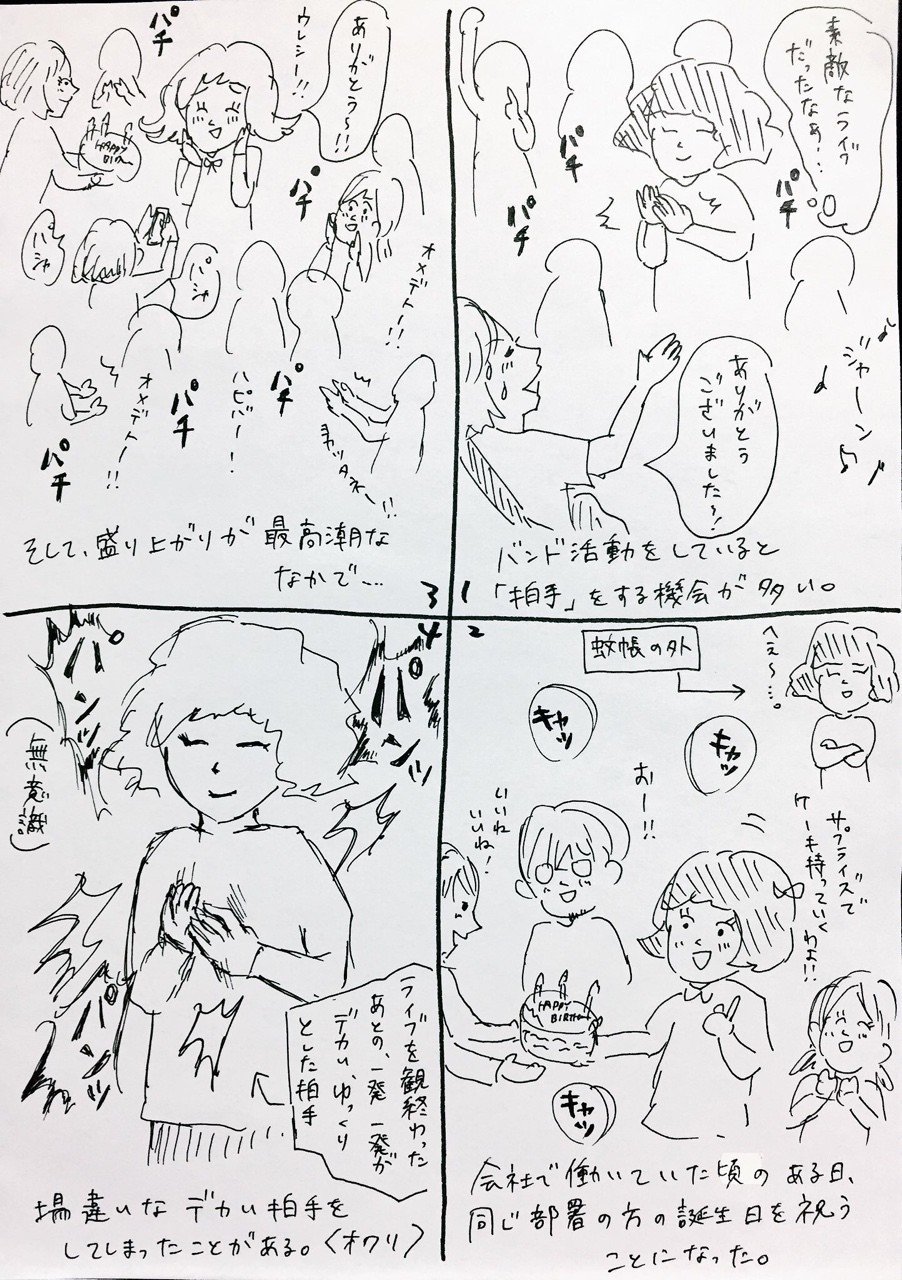 1
素敵なライヴ
だったなぁ…
パチ
パチ
パチ
ジャーン
ありがとう
ございました〜!
バンド活動をしていると
「拍手」をする機会が多い。
2
蚊帳の外
へぇ〜…。
キャッ
キャッ
おー!!
いいね
いいね!
サプライズで
ケーキ持っていくわよ!!
HAPPY
BIRTH
キャッ
会社で働いていた頃のある日、
同じ部署の方の誕生日を祝う
ことになった。
3
ありがとう〜!!
ウレシー!!
パチ
HAPPY
BIRTH
パチ
パシャ
パシャ
オメデトー!!
ハピバー!
パチ
オメデトー!!
パチ
パチ
そして、盛り上がりが最高潮な
なかで…
4
パンッッ
パンッッ
(無意識)
パンッッ
ライブを観終わった
あとの、一発一発が
デカい、ゆっくり
とした拍手
場違いなデカい拍手を
してしまったことがある。〈オワリ〉